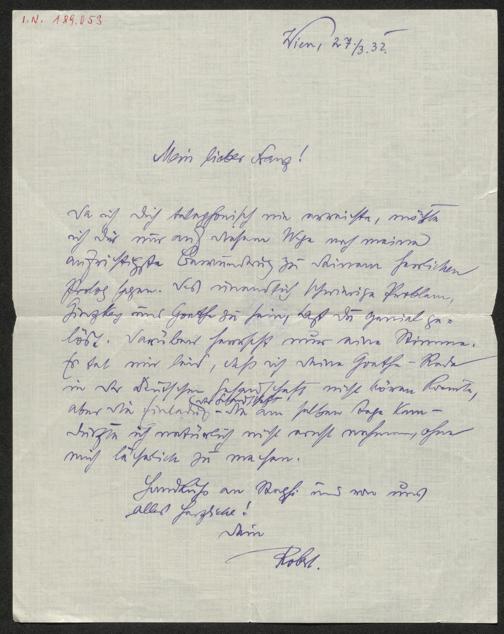 I.N. 189.053
Wien, 27./3.32.
Mein lieber Franz!
Da ich Dich telephonisch nie erreichte, möchte
ich Dir nur auf diesem Wege noch meine
aufrichtigste Bewunderung zu Deinem herrlichen
Prolog sagen. Das unendlich schwierige Problem,
Ginzkey und Goethe zu sein, hast Du genial ge-
löst. Darüber herrscht nur eine Stimme.
Es tat mir leid, daß ich Deine Goethe-Rede
in der Deutschen Gesandtschaft nicht hören konnte,
aber die Einladung - die am selben Tage kam -
durfte ich natürlich nicht ernst nehmen, ohne
mich lächerlich zu machen.
Handkuß an Steffi und von uns
alles Herzliche!
Dein
Robert.